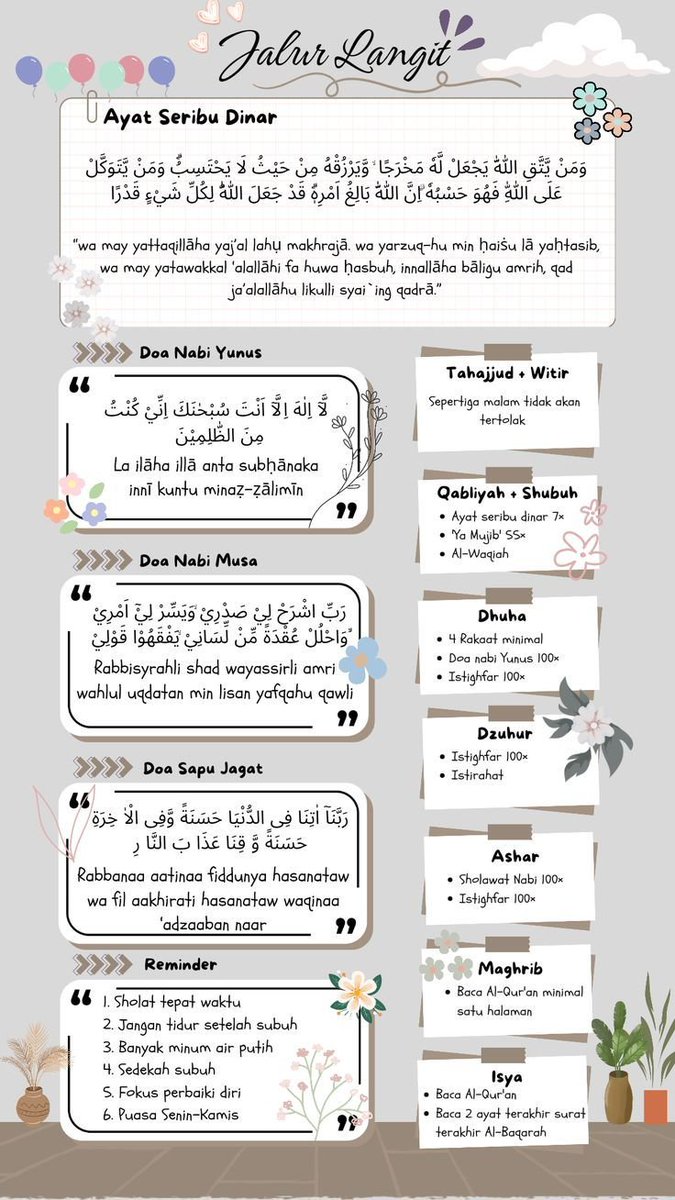 Jalur Langit
Ayat Seribu Dinar
وَمَنْ يَّتَّقِ اللّٰهَ يَجْعَلْ لَّهٗ مَخْرَجًا ۙ وَّيَرْزُقْهُ مِنْ حَيْثُ لَا يَحْتَسِبُۗ وَمَنْ يَّتَوَكَّلْ
عَلَى اللّٰهِ فَهُوَ حَسْبُهٗ ۗاِنَّ اللّٰهَ بَالِغُ اَمْرِهٖۗ قَدْ جَعَلَ اللّٰهُ لِكُلِّ شَيْءٍ قَدْرًا
"wa may yattaqillāha yaj'al lahụ makhrajā. wa yarzuq-hu min ḥaiṡu lā yaḥtasib,
wa may yatawakkal 'alallāhi fa huwa ḥasbuh, innallāha bāligu amrih, qad
ja'alallāhu likulli syai`ing qadrā."
Doa Nabi Yunus
لَّآ اِلٰهَ اِلَّآ اَنْتَ سُبْحٰنَكَ اِنِّيْ كُنْتُ
مِنَ الظّٰلِمِيْنَ
La ilāha illā anta subḥānaka
innī kuntu minaẓ-ẓālimīn
Doa Nabi Musa
رَبِّ اشْرَحْ لِيْ صَدْرِيْ ۙوَيَسِّرْ لِيْٓ اَمْرِيْ
ۙوَاحْلُلْ عُقْدَةً مِّنْ لِّسَانِيْ ۙيَفْقَهُوْا قَوْلِيْ
Rabbisyrahli shad wayassirli amri
wahlul uqdatan min lisan yafqahu qawli
Doa Sapu Jagat
رَبَّنَآ اٰتِنَا فِى الدُّنْيَا حَسَنَةً وَّفِى الْاٰ خِرَةِ
حَسَنَةً وَّ قِنَا عَذَا بَ النَّا رِ
Rabbanaa aatinaa fiddunya hasanataw
wa fil aakhirati hasanataw waqinaa
'adzaaban naar
Reminder
1. Sholat tepat waktu
2. Jangan tidur setelah subuh
3. Banyak minum air putih
4. Sedekah subuh
5. Fokus perbaiki diri
6. Puasa Senin-Kamis
Tahajjud + Witir
Sepertiga malam tidak akan
tertolak
Qabliyah + Shubuh
• Ayat seribu dinar 7×
• 'Ya Mujib' 55×
• Al-Waqiah
Dhuha
• 4 Rakaat minimal
• Doa nabi Yunus 100×
• Istighfar 100×
Dzuhur
• Istighfar 100×
• Istirahat
Ashar
• Sholawat Nabi 100×
• Istighfar 100×
Maghrib
• Baca Al-Qur'an minimal
satu halaman
Isya
• Baca Al-Qur'an
• Baca 2 ayat terakhir surat
terakhir Al-Baqarah